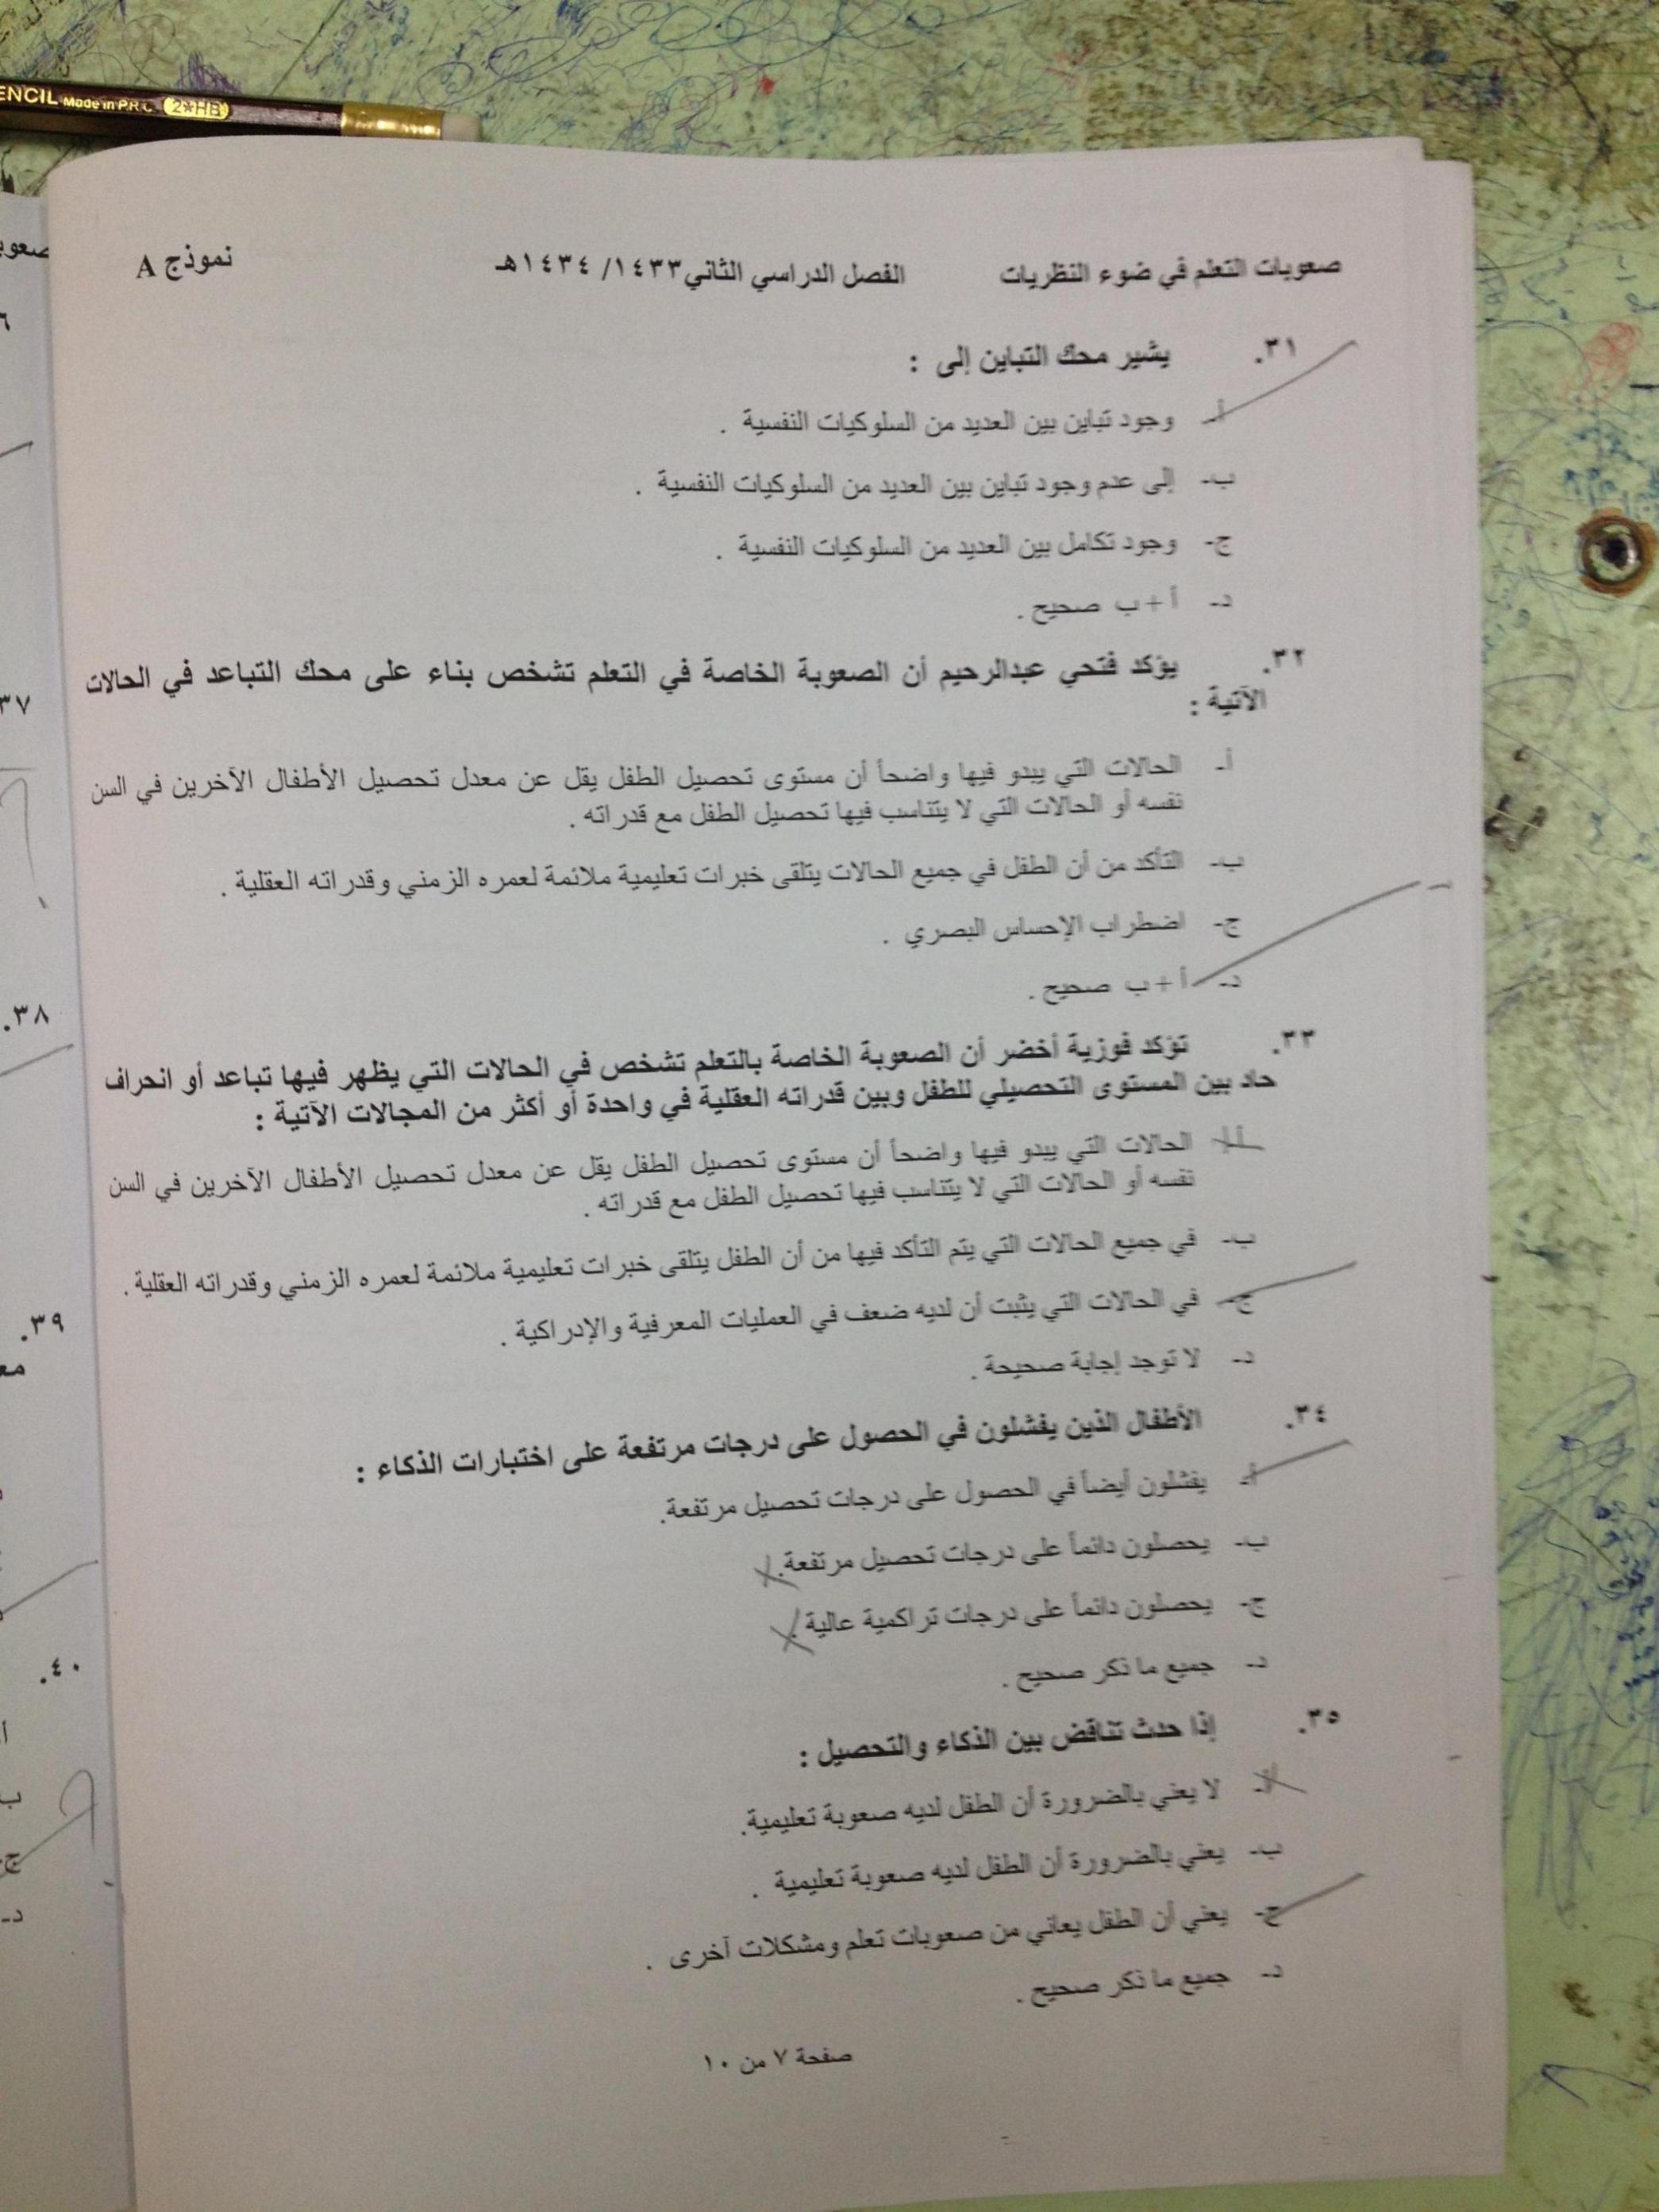 ENCIL Made in P.R.C. 2×HB
صعوبات التعلم في ضوء النظريات الفصل الدراسي الثاني ١٤٣٣/ ١٤٣٤هـ نموذج A
٣١. يشير محك التباين إلى :
أ- وجود تباين بين العديد من السلوكيات النفسية .
ب- إلى عدم وجود تباين بين العديد من السلوكيات النفسية .
ج- وجود تكامل بين العديد من السلوكيات النفسية .
د- أ + ب صحيح .
٣٢. يؤكد فتحي عبدالرحيم أن الصعوبة الخاصة في التعلم تشخص بناء على محك التباعد في الحالات
الآتية :
أ- الحالات التي يبدو فيها واضحاً أن مستوى تحصيل الطفل يقل عن معدل تحصيل الأطفال الآخرين في السن
نفسه أو الحالات التي لا يتناسب فيها تحصيل الطفل مع قدراته .
ب- التأكد من أن الطفل في جميع الحالات يتلقى خبرات تعليمية ملائمة لعمره الزمني وقدراته العقلية .
ج- اضطراب الإحساس البصري .
د- أ + ب صحيح .
٣٣. تؤكد فوزية أخضر أن الصعوبة الخاصة بالتعلم تشخص في الحالات التي يظهر فيها تباعد أو انحراف
حاد بين المستوى التحصيلي للطفل وبين قدراته العقلية في واحدة أو أكثر من المجالات الآتية :
أ- الحالات التي يبدو فيها واضحاً أن مستوى تحصيل الطفل يقل عن معدل تحصيل الأطفال الآخرين في السن
نفسه أو الحالات التي لا يتناسب فيها تحصيل الطفل مع قدراته .
ب- في جميع الحالات التي يتم التأكد فيها من أن الطفل يتلقى خبرات تعليمية ملائمة لعمره الزمني وقدراته العقلية .
ج- في الحالات التي يثبت أن لديه ضعف في العمليات المعرفية والإدراكية .
د- لا توجد إجابة صحيحة .
٣٤. الأطفال الذين يفشلون في الحصول على درجات مرتفعة على اختبارات الذكاء :
أ- يفشلون أيضاً في الحصول على درجات تحصيل مرتفعة.
ب- يحصلون دائماً على درجات تحصيل مرتفعة.
ج- يحصلون دائماً على درجات تراكمية عالية .
د- جميع ما ذكر صحيح .
٣٥. إذا حدث تناقض بين الذكاء والتحصيل :
أ- لا يعني بالضرورة أن الطفل لديه صعوبة تعليمية.
ب- يعني بالضرورة أن الطفل لديه صعوبة تعليمية .
ج- يعني أن الطفل يعاني من صعوبات تعلم ومشكلات آخرى .
د- جميع ما ذكر صحيح .
صفحة ٧ من ١٠
صعوب
٣٧
٣٨.
٣٩.
مع
٤٠.
أ
ب
ج-
د-